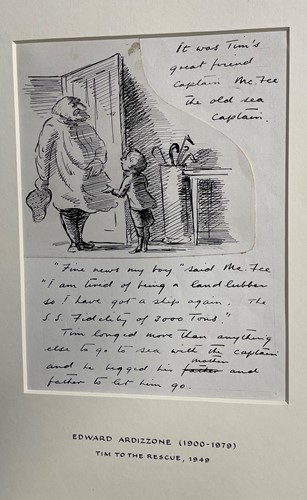 It was Tim's
great friend
Captain Mc.Fee
the old sea
Captain.
"Fine news my boy" said Mc.Fee
"I am tired of being a land lubber
so I have got a ship again. The
S.S. Fidelity of 3000 Tons."
Tim longed more than anything
else to go to sea with the captain
and he begged his father mother and
father to let him go.
EDWARD ARDIZZONE (1900-1979)
TIM TO THE RESCUE, 1949